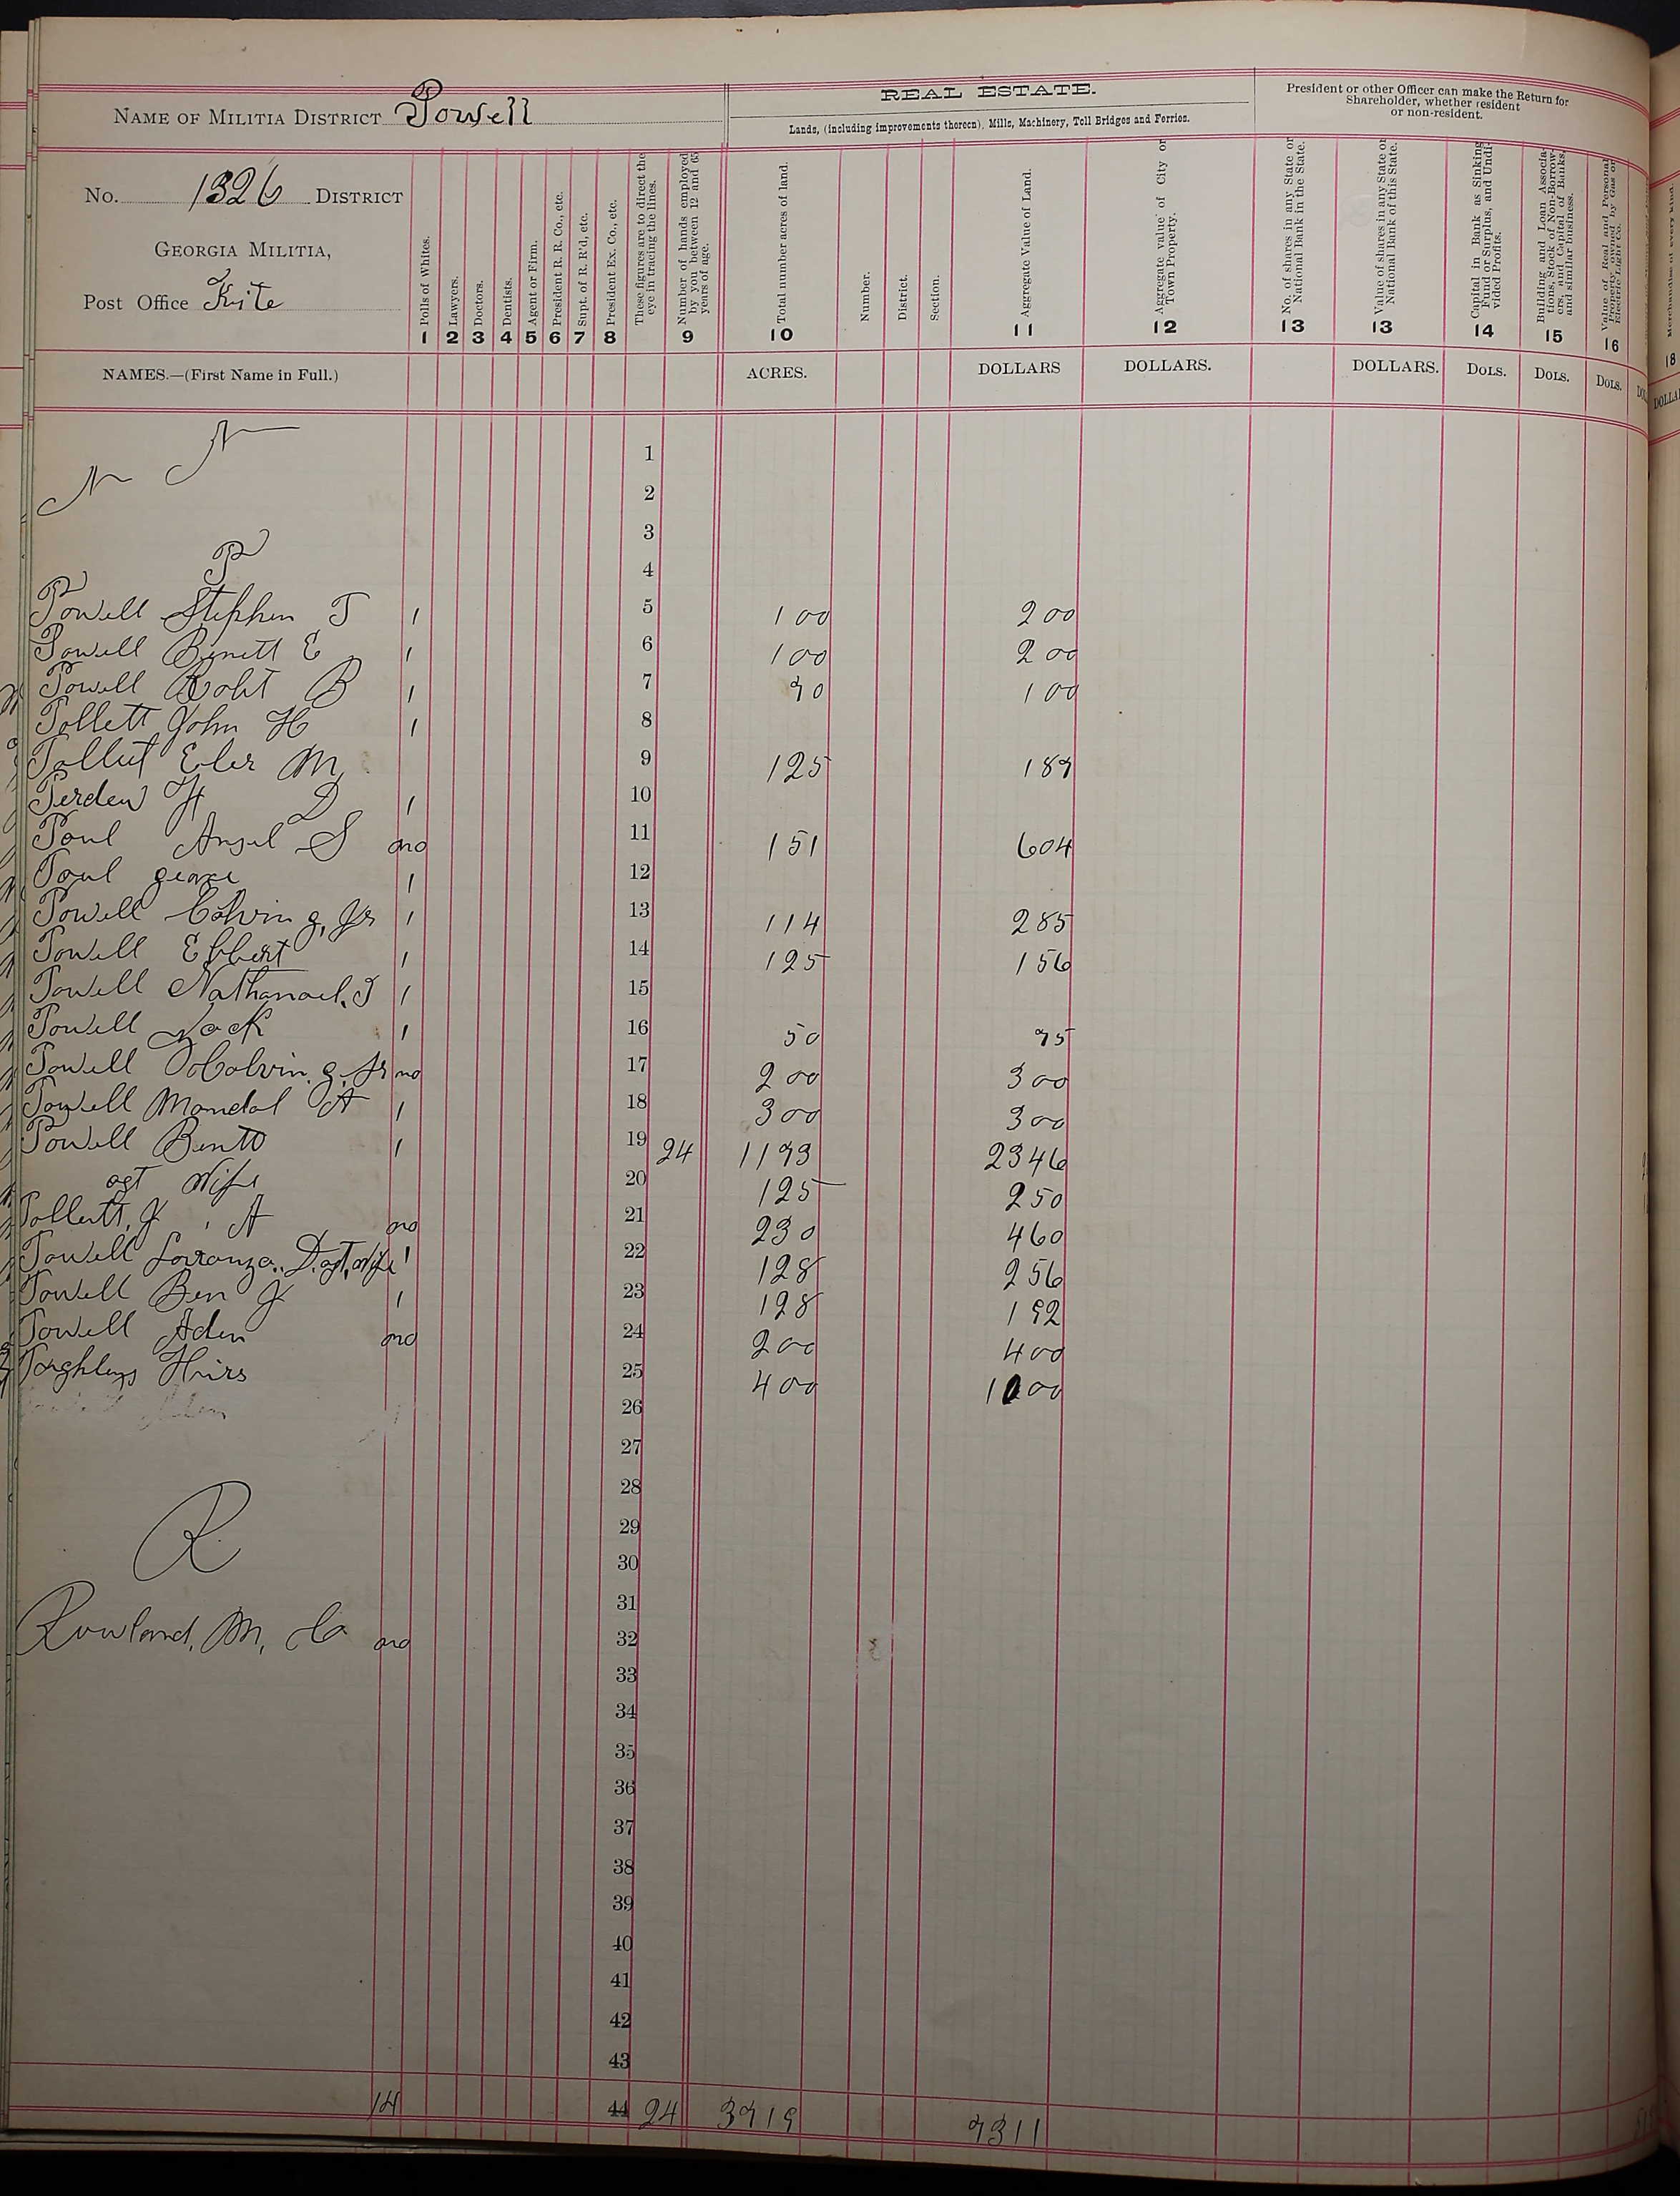 NAME OF MILITIA DISTRICT Powell
REAL ESTATE.
Lands, (including improvements thereon), Mills, Machinery, Toll Bridges and Ferries.
President or other Officer can make the Return for
Shareholder, whether resident
or non-resident.
No. 1326 DISTRICT
GEORGIA MILITIA,
Post Office Kite
Polls of Whites.
Lawyers.
Doctors.
Dentists.
Agent or Firm.
President R. R. Co., etc.
Supt. of R. R'd, etc.
President Ex. Co., etc.
These figures are to direct the
eye in tracing the lines.
Number of hands employed
by you between 12 and 65
years of age.
Total number acres of land.
Number.
District.
Section.
Aggregate Value of Land.
Aggregate value of City or
Town Property.
No. of shares in any State or
National Bank in the State.
Value of shares in any State or
National Bank of this State.
Capital in Bank as Sinking
Fund or Surplus, and Undi-
vided Profits.
Building and Loan Associa-
tions, Stock of Non-Borrow-
ers, and Capital of Banks,
and similar business.
Value of Real and Personal
Property owned by Gas or
Electric Light Co.
Merchandise of every kind.
1 2 3 4 5 6 7 8 9 10 11 12 13 13 14 15 16 18
NAMES.—(First Name in Full.) ACRES. DOLLARS DOLLARS. DOLLARS. DOLS. DOLS. DOLS.
N 1
N 2
3
P 4
Powell Stephen T 1 5 100 200
Powell Binett E 1 6 100 200
Powell Robt B 1 7 70 100
Pollett John H 1 8
Pollett Eler M 9 125 187
Perdew H D 1 10
Poul Ansel S no 11 151 604
Poul george 1 12
Powell Colvin g, Jr 1 13 114 285
Powell Ebbert 1 14 125 156
Powell Nathanael. J 1 15
Powell Jack 1 16 50 75
Powell Colvin. g. Sr no 17 200 300
Powell Mandal A 1 18 300 300
Powell Bentt 1 19 24 1173 2346
agt wife 20 125 250
Pollett, J A no 21 230 460
Powell Lorranza. D. agt, wife 1 22 128 256
Powell Ben J 1 23 128 192
Powell Aden no 24 200 400
Heirs 25 400 1000
26
27
28
R 29
30
31
Rowland, M, C no 32
33
34
35
36
37
38
39
40
41
42
43
14 44 24 3719 7311